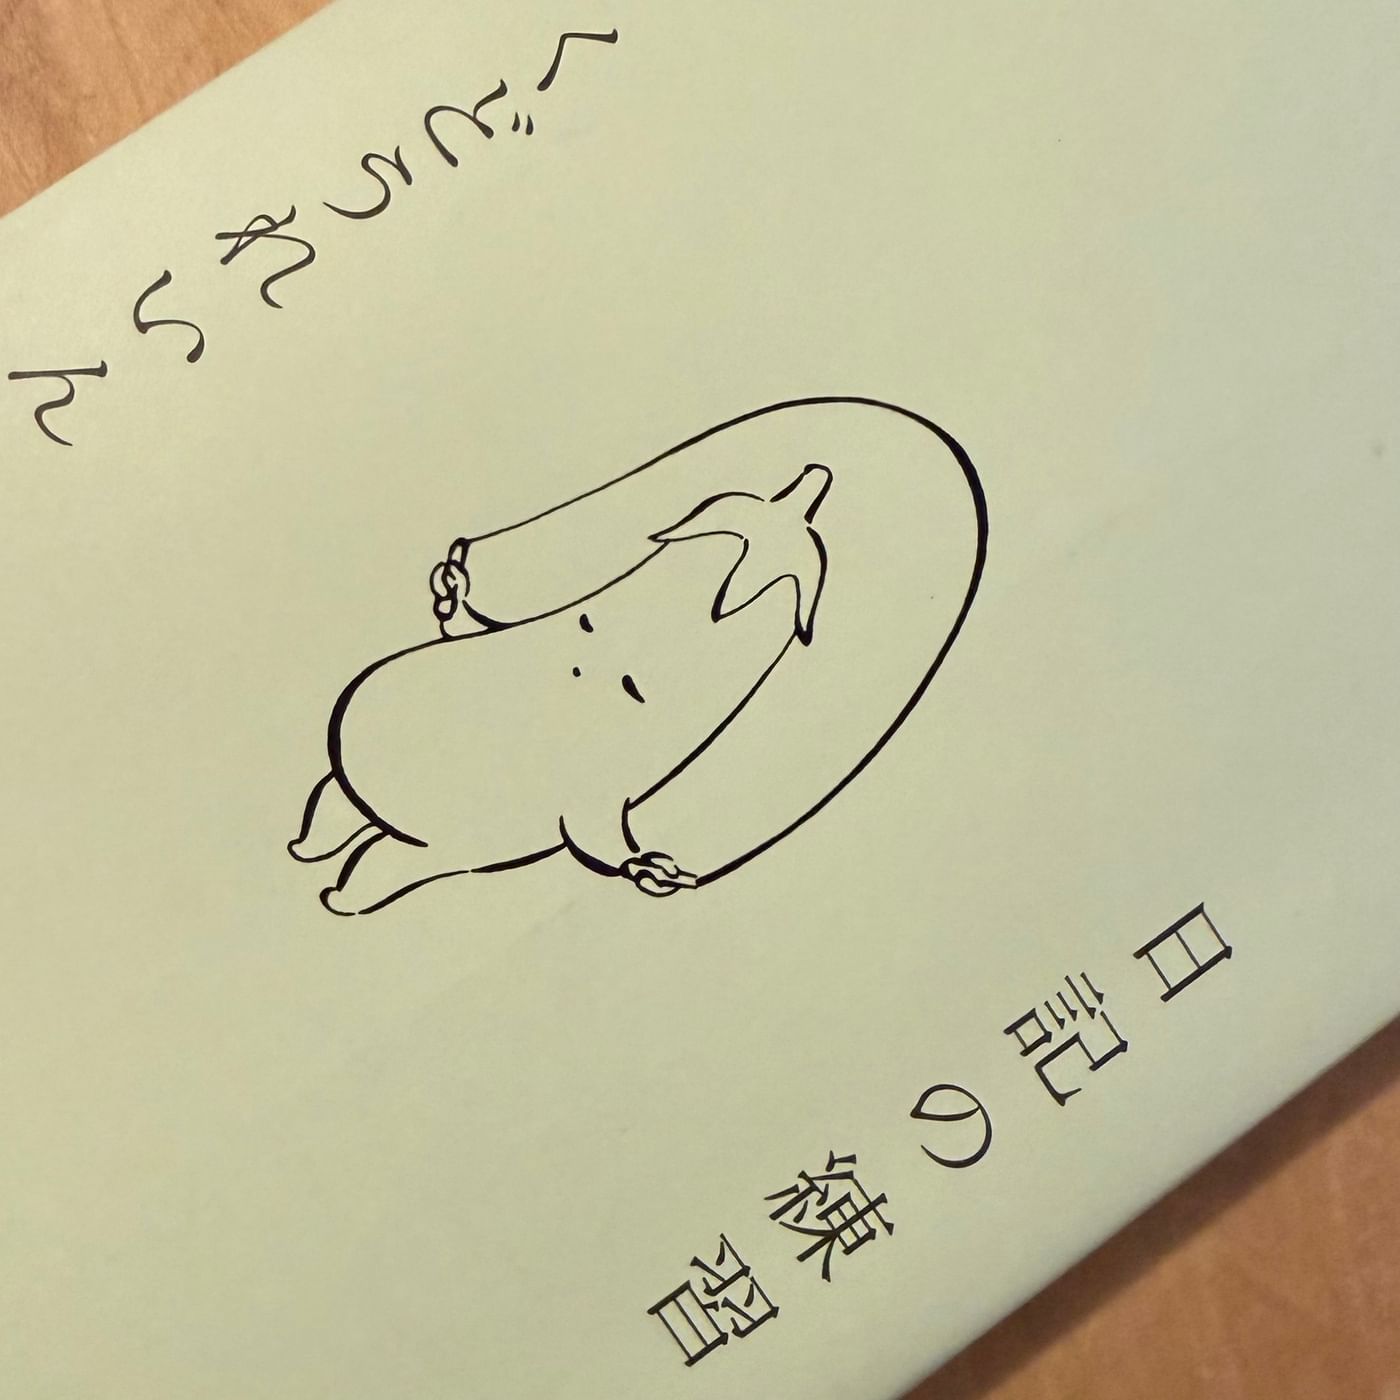 日記の練習
くどうれいん